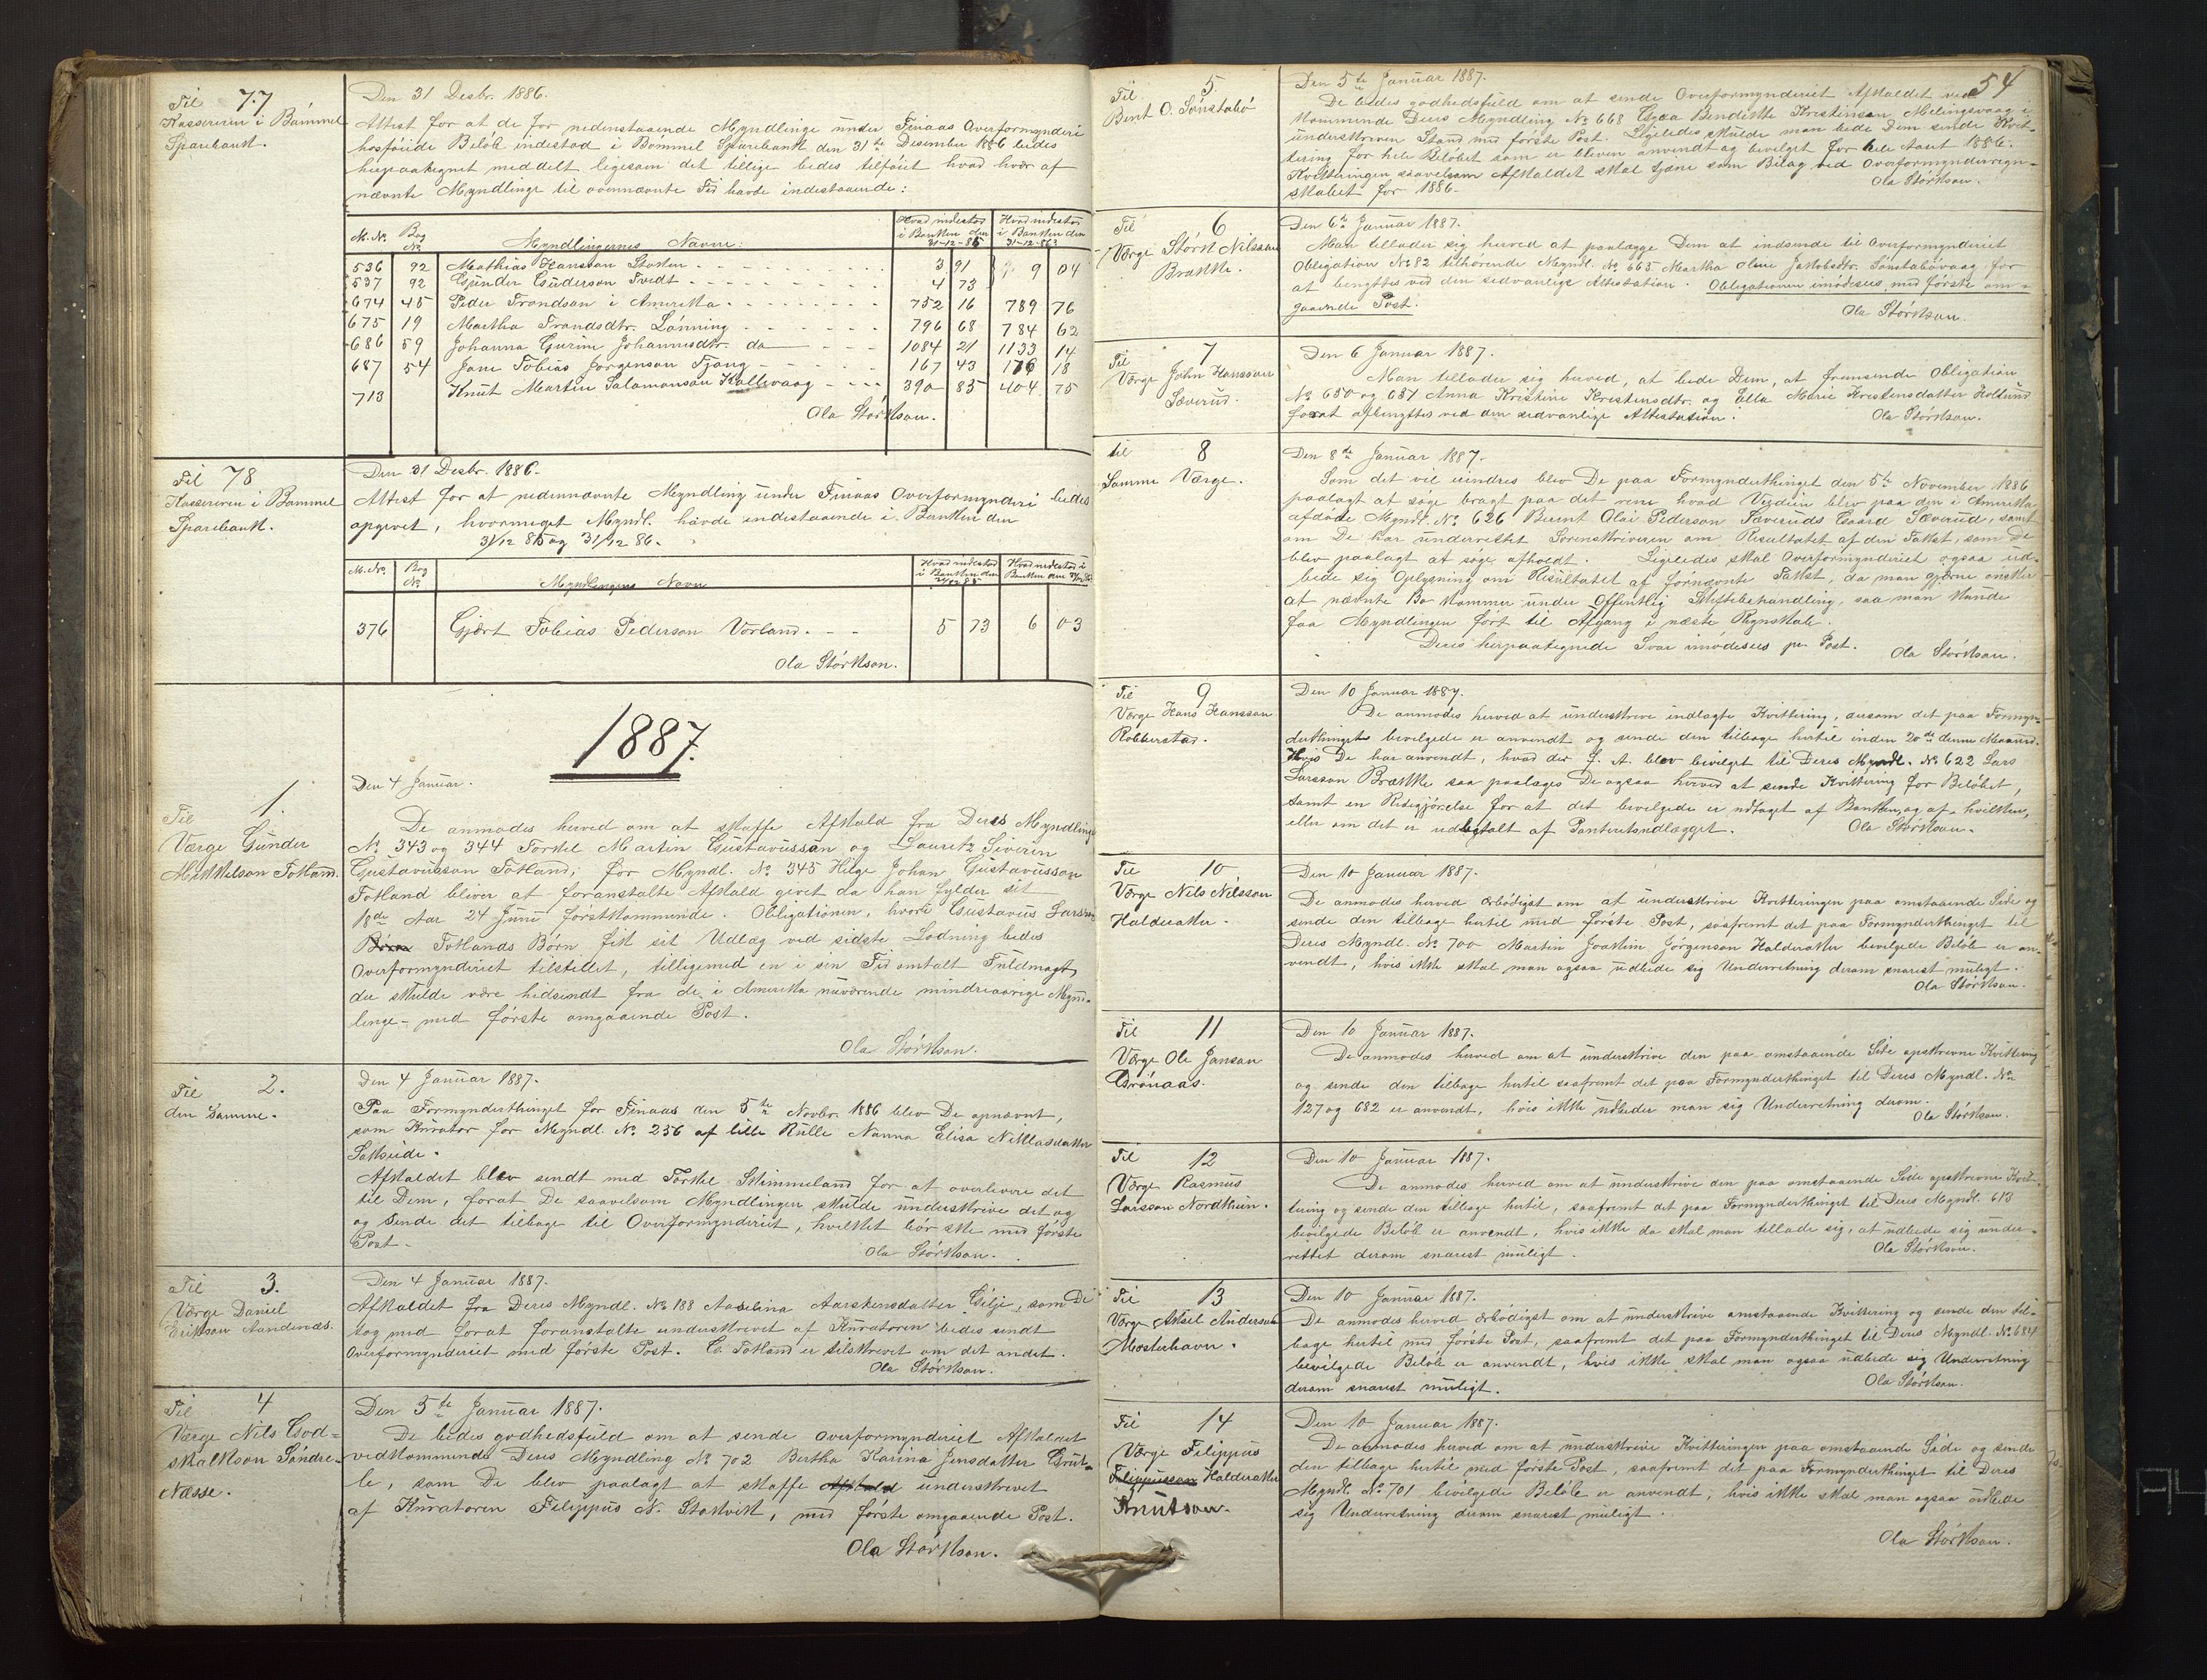 Til 77
Kassereren i Bömmel
Sparebank.
Den 31 Desbr. 1886.
Attest for at de for nedenstaaende Myndlinge under Finaas Overformynderi
hosföiede Belöb indestod i Bömmel Sparebank den 31te Desember 1886 bedes
herpaategnet meddelt ligesom det tillige bedes tilföiet hvad hver af
nævnte Myndlinge til ovennævnte Tid havde indestaaende:
M. No. Bog No Myndlingernes Navne: Hvad indestod i Banken den 31-12-85 Hvad indestod i Banken den 31-12-86
536 92 Mathias Hansson Stokken 3 91 9 04
537 92 Gunder Guderson Tvedt 4 73
674 45 Peder Trondson i Amerika 752 16 789 76
675 19 Martha Trondsdtr. Lönning 796 68 784 62
686 59 Johanna Gurine Johannesdtr. do 1084 21 1133 14
687 54 Jens Tobias Jörgenson Fjong 167 43 176 18
713 Knut Martin Salamonson Kallevaag 390 85 404 75
Ola Störkson.
Til 78
Kassereren i Bömmel
Sparebank.
Den 31 Desbr. 1886.
Attest for at nedennævnte Myndling under Finaas Overformynderi bedes
opgivet, hvormeget Myndl. havde indestaaende i Banken den
31/12 85 og 31/12 86.
M. No. Bog No. Myndlingens Navn Hvad indestod i Banken den 31/12 85 Hvad indestod i Banken den 31/12 86
376 Gjert Tobias Pederson Vorland 5 73 6 03
Ola Störkson.
1887.
Til 1.
Værge Gunder
Mikkelson Totland.
Den 4 Januar.
De anmodes herved om at skaffe Afkald fra Deres Myndling
No. 343 og 344 Torkel Martin Gustavusson og Lauritz Siverin
Gustavusson Totland; for Myndl. No. 345 Helge Johan Gustavusson
Totland bliver at foranstalte Afkald givet da han fylder sit
18de Aar 24 Juni förstkommende. Obligationen, hvori Gustavus Larsson
Totlands Börn fik sit Udlæg ved sidste Lodning bedes
Overformynderiet tilstillet, tilligemed en i sin Tid omtalt Fuldmagt
der skulde være hidsendt fra de i Amerika nuværende mindreaarige Mynd-
linge - med förste omgaaende Post.
Ola Störkson.
Til 2.
den Samme.
Den 4 Januar 1887.
Paa Formynderthinget for Finaas den 5te Novbr. 1886 blev De opnævnt,
som Kurator for Myndl. No. 256 af lille Rulle Nanna Elisa Niklasdatter
Sakseide.
Afkaldet blev sendt med Torkel Skimmeland for at overlevere det
til Dem, forat De saavelsom Myndlingen skulde underskrive det og
og sende det tilbage til Overformynderiet, hvilket bör ske med förste
Post.
Ola Störkson.
Til 3.
Værge Daniel
Erikson Sandvoxs.
Den 4 Januar 1887.
Afkaldet fra Deres Myndl. No. 188 Aaselina Aarskensdatter Gilje, som De
tog med forat foranstalte underskrevet af Kuratoren bedes sendt
Overformynderiet med förste Post. G. Totland er tilskrevet om det andet.
Ola Störkson.
Til 4
Værge Nils God-
skalkson Söndre-
Næsse.
Den 5te Januar 1887.
De bedes godhedsfuld om at sende Overformynderiet Afkaldet
vedkommende Deres Myndling No. 702 Bertha Karina Jensdatter Grut-
le, som De blev paalagt at skaffe Afkald underskrevet
af Kuratoren Filippus N. Stokvik, med förste omgaaende Post.
Ola Störkson.
54
Til 5
Bent O. Sönstabö
Den 5te Januar 1887.
De bedes godhedsfuld om at sende Overformynderiet Afkaldet ved
kommende Deres Myndling No. 668 Elgaa Bendikte Kristenson Melingsvaag i
underskreven Stand med förste Post. Ligeledes skulde man bede Dem sende Kvit-
tering for hele Belöbet som er bleven anvendt og bevilget for hele Aaret 1886.
Kvitteringen saavelsom Afkaldet skal tjene som Bilag ved Overformynderregn-
skabet for 1886.
Ola Störkson.
Til 6
Værge Störk Nilsson
Brække.
Den 6te Januar 1887.
Man tillader sig herved at paalægge Dem at indsende til Overformynderiet
Obligation No. 82 tilhörende Myndl. No. 665 Martha Oline Jakobsdtr. Sönstabövaag for
at benyttes ved den sedvanlige Attestation. Obligationen imödesees med förste om-
gaaende Post.
Ola Störkson.
Til 7
Værge John Hansson
Sæverud.
Den 6 Januar 1887.
Man tillader sig herved, at bede Dem, at fremsende Obligation
No. 650 og 681 Anna Kristine Kristensdtr. og Ella Marie Kristensdatter Holtund
forat afbenyttes ved den sedvanlige Attestation.
Ola Störkson.
til 8
Samme Værge.
Den 8de Januar 1887.
Som det vil erindres blev De paa Formynderthinget den 5te November 1886
paalagt at söge bragt paa det rene hvad Værdien blev paa den i Amerika
afdöde Myndl. No. 626 Bernt Olai Pederson Sæveruds Gaard Sæverud, samt
om De har underrettet Sorenskriveren om Resultatet af den Takst, som De
blev paalagt at söge afholdt. Ligeledes skal Overformynderiet ogsaa ud-
bede sig Oplysning om Resultatet af fornævnte Takst, da man gjerne önsker
at nævnte Bo kommer under Offentlig Skiftebehandling, saa man kunde
faa Myndlingen fört til Afgang i næste Regnskab.
Deres herpaategnede Svar imödesees pr. Post.
Ola Störkson.
Til 9
Værge Hans Hansson
Robberstad.
Den 10 Januar 1887.
De anmodes herved at underskrive indlagte Kvittering, dersom det paa Formyn-
derthinget bevilgede er anvendt og sende den tilbage hertil inden 20de denne Maaned.
Hvis De har anvendt, hvad der f. A. blev bevilget til Deres Myndl. No 622 Lars
Larsson Brække saa paalægges De ogsaa herved at sende Kvittering for Belöbet,
samt en Redegjörelse for at det bevilgede er udtaget af Banken, og af hvilken,
eller om det er udbetalt af Panteutndlægget.
Ola Störkson.
Til 10
Værge Nils Nilsson
Halderaker.
Den 10 Januar 1887.
De anmodes herved ærbödigst om at underskrive Kvitteringen paa omstaaende Side og
sende den tilbage hertil med förste Post, saafremt det paa Formynderthinget til
Deres Myndl. No. 700 Martin Joakim Jörgenson Halderaker bevilgede Belöb er an-
vendt, hvis ikke skal man ogsaa udbede sig Underretning derom snarest muligt.
Ola Störkson.
Til 11
Værge Ole Janson
Grönaas.
Den 10 Januar 1887.
De anmodes herved om at underskrive den paa omstaaende Side opskrevne Kvittering
og sende den tilbage hertil saafremt det paa Formynderthinget til Deres Myndl. No.
127 og 682 er anvendt, hvis ikke udbeder man sig Underretning derom.
Ola Störkson.
Til 12
Værge Rasmus
Larsson Nordthun.
Den 10 Januar 1887.
De anmodes herved om at underskrive den paa omstaaende Side opskrevne Kvit-
tering og sende den tilbage hertil, saafremt det paa Formynderthinget til Deres Myndl. 613
bevilgede Belöb er anvendt, hvis ikke da skal man tillade sig, at udbede sig under-
rettet derom snarest muligt.
Ola Störkson.
Til 13
Værge Aksel Anderson
Mosterhavn.
Den 10 Januar 1887.
De anmodes herved ærbödigst om at underskrive omstaaende Kvittering og sende den til-
bage hertil med förste Post, saafremt det paa Formynderthinget til Deres Myndl. No. 684
bevilgede Belöb er anvendt, hvis ikke skal man ogsaa udbede sig Underretning
derom snarest muligt.
Ola Störkson.
Til 14
Værge Filippus
Filippusson Halderaker
Knutson.
Den 10 Januar 1887.
De anmodes herved om at underskrive Kvitteringen paa omstaaende Side og sende
den tilbage hertil med förste Post, saafremt det paa Formynderthinget til Deres
Myndl. No. 701 bevilgede Belöb er anvendt, hvis ikke skal man ogsaa udbede
sig Underretning derom snarest muligt.
Ola Störkson.